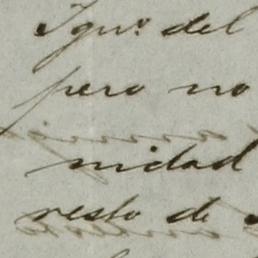 Ign.º del
pero no
nidad
resto de